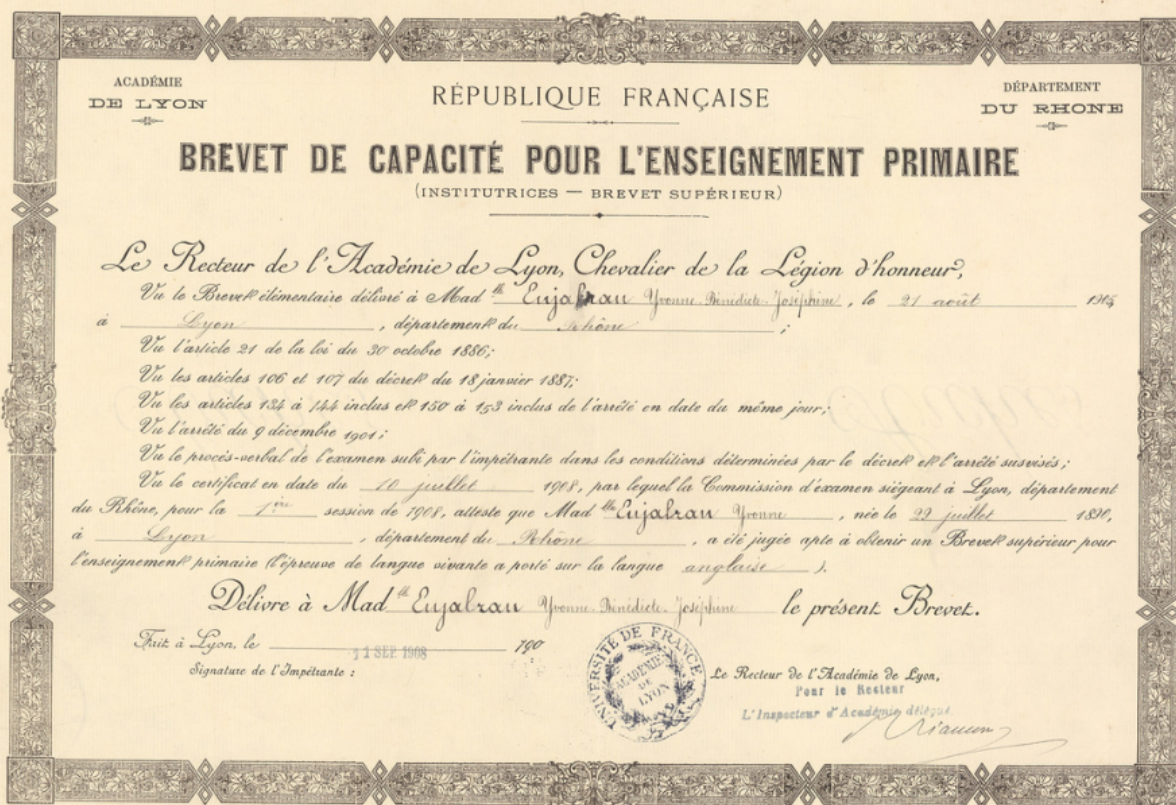 ACADÉMIE
DE LYON
RÉPUBLIQUE FRANÇAISE
DÉPARTEMENT
DU RHONE
BREVET DE CAPACITÉ POUR L'ENSEIGNEMENT PRIMAIRE
(INSTITUTRICES — BREVET SUPÉRIEUR)
Le Recteur de l'Académie de Lyon, Chevalier de la Légion d'honneur,
Vu le Brevet élémentaire délivré à Mad lle Enjalran Yvonne-Bénédicte-Joséphine, le 21 août
à Lyon, département du Rhône;
Vu l'article 21 de la loi du 30 octobre 1886;
Vu les articles 106 et 107 du décret du 18 janvier 1887;
Vu les articles 134 à 144 inclus et 150 à 153 inclus de l'arrêté en date du même jour;
Vu l'arrêté du 9 décembre 1901;
Vu le procès-verbal de l'examen subi par l'impétrante dans les conditions déterminées par le décret et l'arrêté susvisés;
Vu le certificat en date du 10 juillet 1908, par lequel la Commission d'examen siégeant à Lyon, département
du Rhône, pour la 1ère session de 1908, atteste que Mad lle Enjalran Yvonne, née le 29 juillet 1890,
à Lyon, département du Rhône, a été jugée apte à obtenir un Brevet supérieur pour
l'enseignement primaire (l'épreuve de langue vivante a porté sur la langue anglaise).
Délivre à Mad lle Enjalran Yvonne-Bénédicte-Joséphine le présent Brevet.
Fait à Lyon, le 11 SEP 1908 190
Signature de l'Impétrante :
UNIVERSITÉ DE FRANCE
ACADÉMIE
DE
LYON
Le Recteur de l'Académie de Lyon,
Pour le Recteur
L'Inspecteur d'Académie délégué